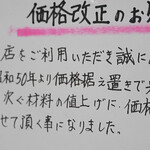 価格改正のお
店をご利用いただき誠に
和50年より価格据え置きで
次ぐ材料の値上げに、価格
せて頂く事になりました。